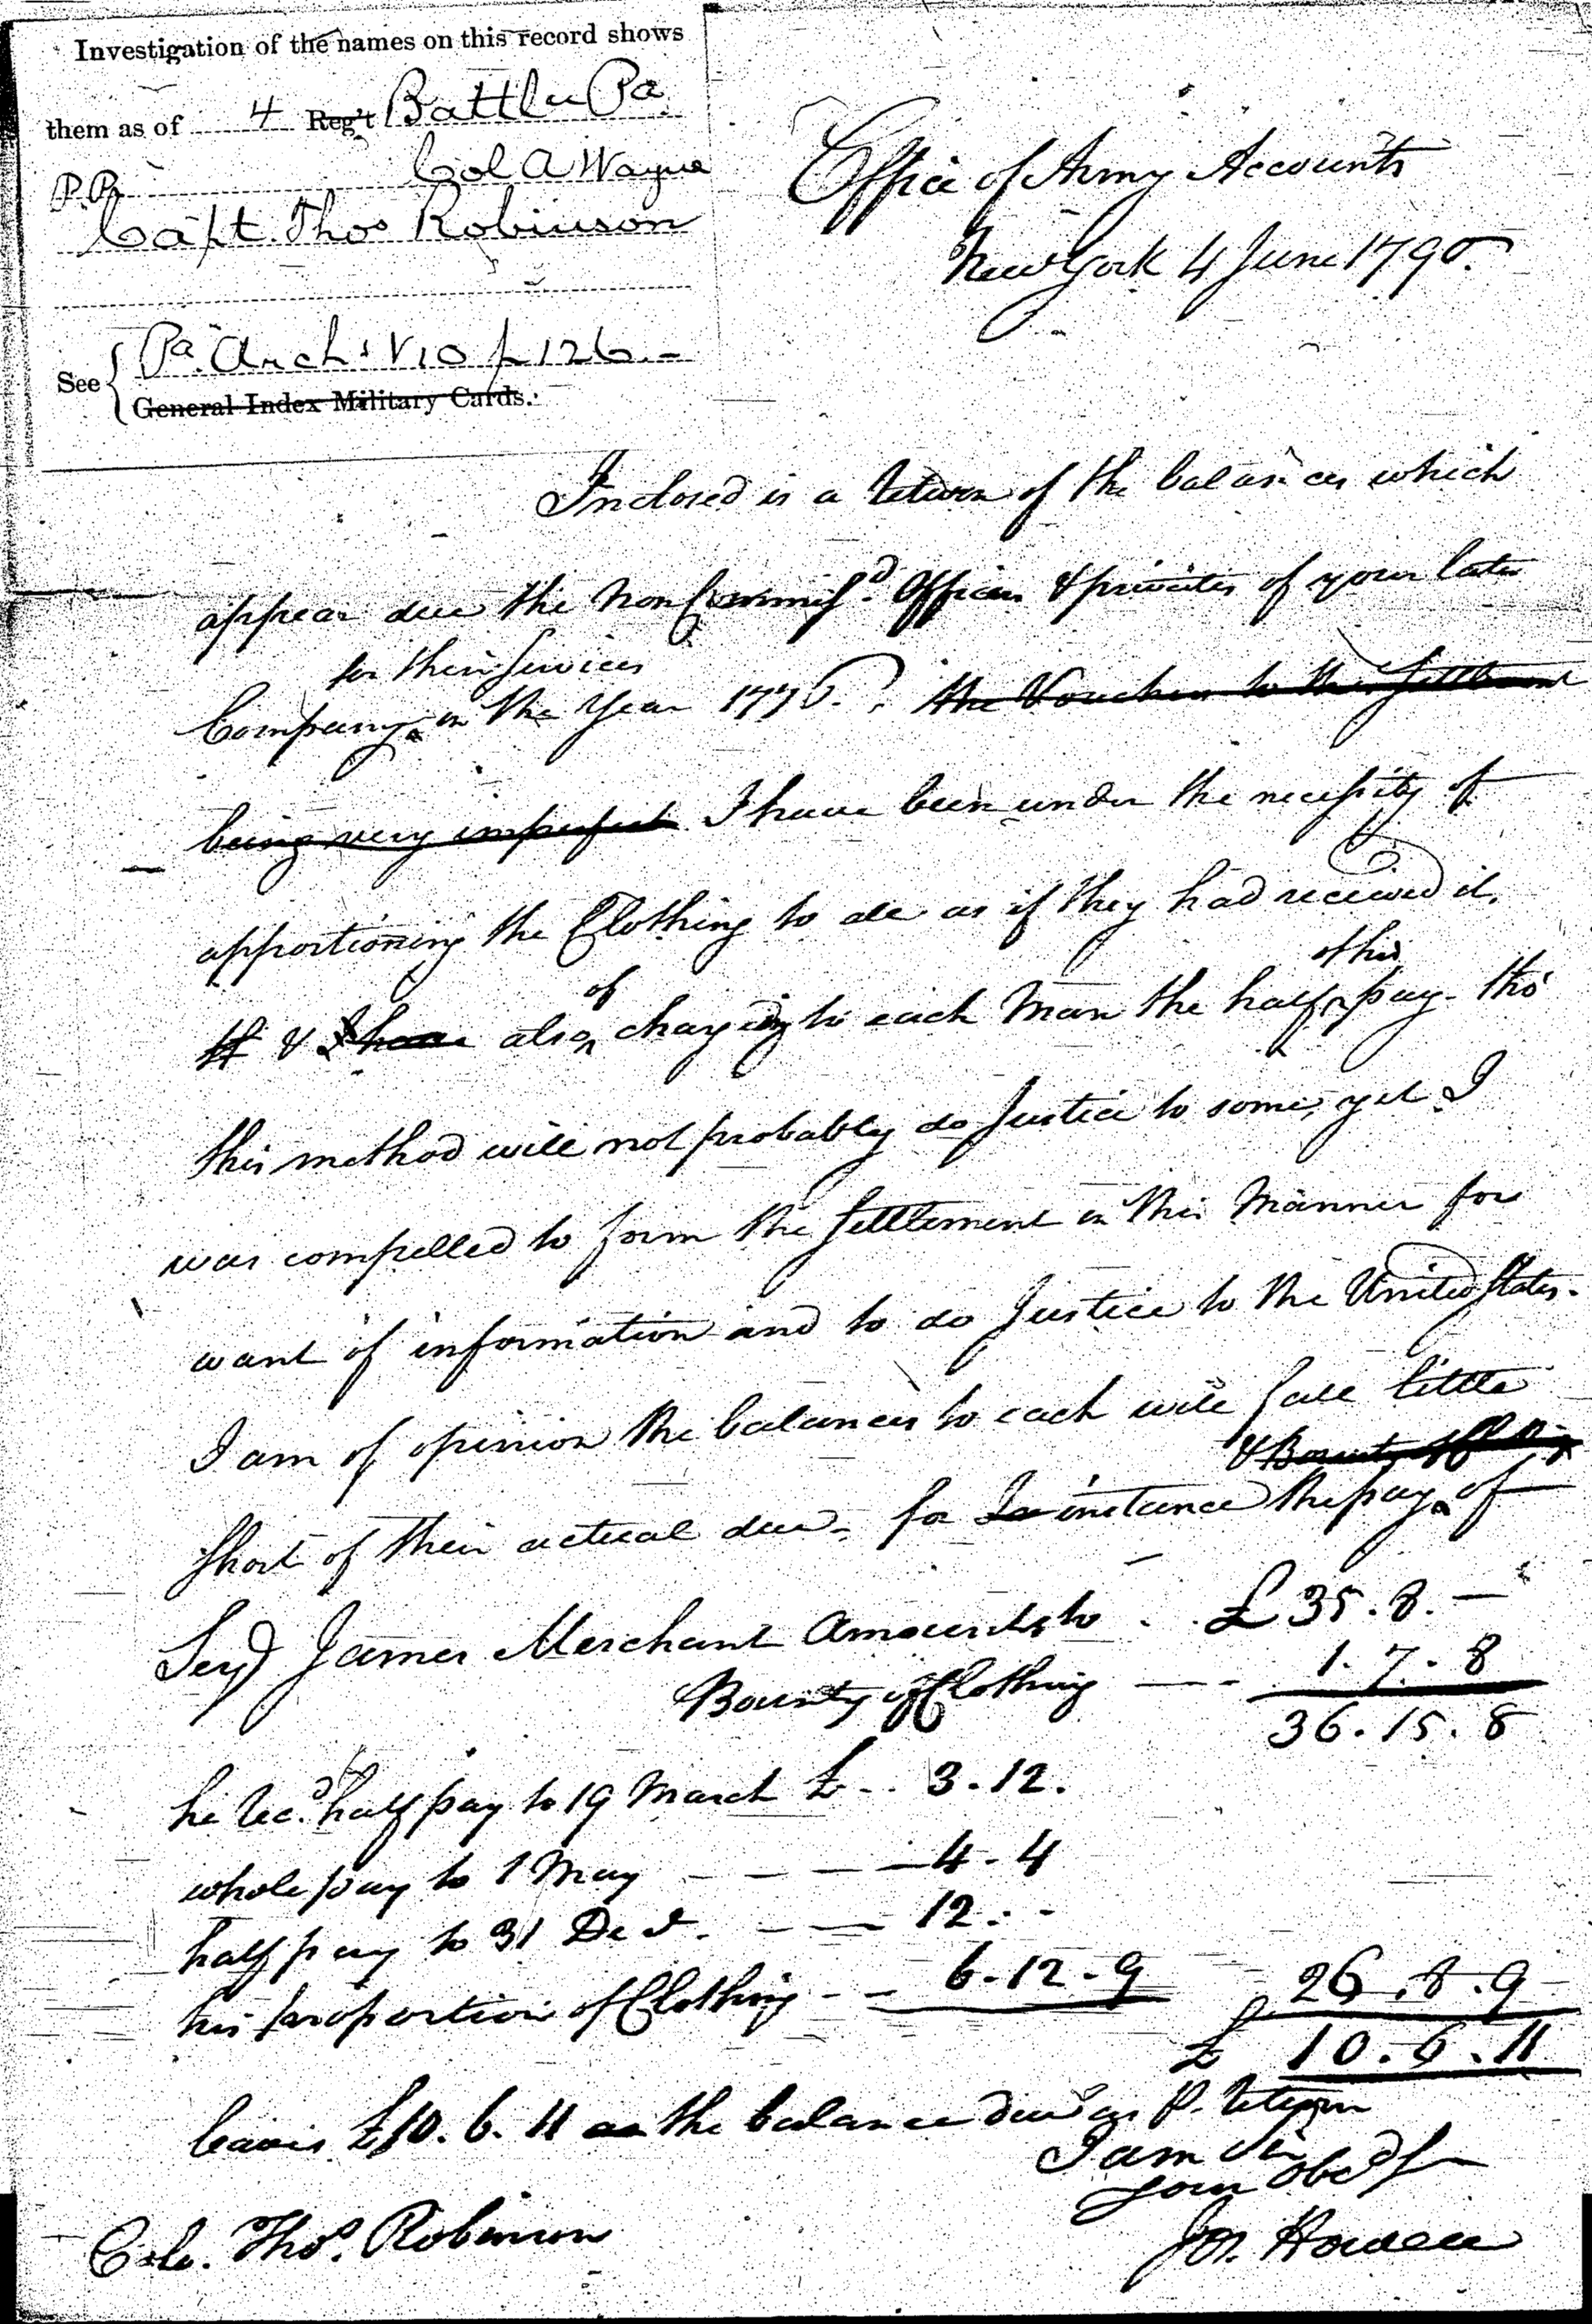 Investigation of the names on this record shows
them as of 4 Reg't Battln Pa
P.R. Col A Wayne
Capt. Thos Robinson
See { Pa. Arch: V10 p 126.-
General Index Military Cards.
Office of Army Accounts
New York 4 June 1790.
Inclosed is a return of the balances which
appear due the Non Commiss.d Officers & privates of your late
for their Services
Company in the Year 1776. the Vouchers to this Settlement
being very imperfect I have been under the necessity of
apportioning the Clothing to all as if they had received it,
other
of
It & I have also charging to each Man the half pay - tho'
this method will not probably do Justice to some, yet I
was compelled to form the Settlement in this Manner for
want of information and to do Justice to the United States.
I am of opinion the balances to each will fall little
& Bounty of
short of their actual due - for In instance the pay of
Serj.t James Merchant Amounts to . . £ 35. 8. —
Bounty of Clothing — - 1. 7. 8
36. 15. 8
he rec.d half pay to 19 March £ - . 3. 12.
whole pay to 1 May - - - - 4 - 4
half pay to 31 Dec.r - — 12. . -
his proportion of Clothing - - 6. 12. 9 26. 8. 9
£ 10. 6. 11
leavs £10. 6. 11 as the balance due as P. return
I am Sir
your Obed.t S
Jos. Howell
Colo. Thos. Robinson